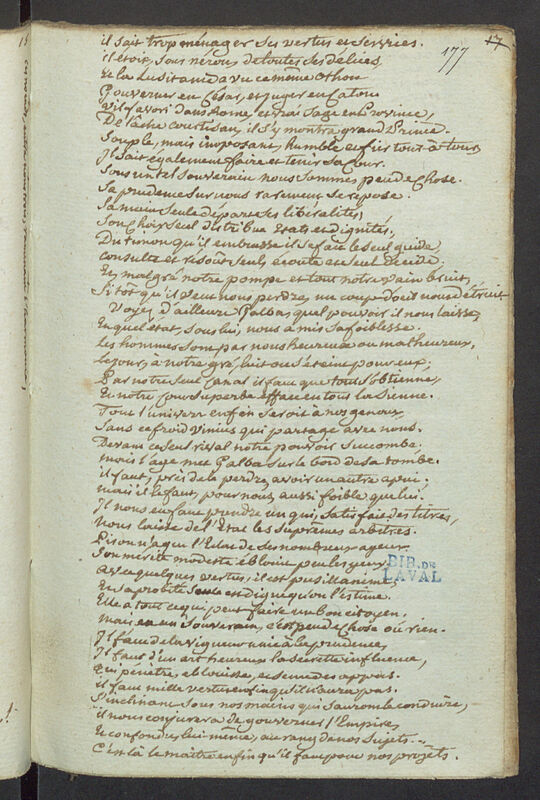 17
177
il sait trop ménager ses vertus et ses vices.
il étoit, sous néron, de toutes ses délices
et la Lusitanie a vu ce même Othon
Gouverner en César, et juger en Caton
Vil favori dans Rome, et vrai sage en Province,
De lâche courtisan, il s'y montra grand Prince.
Souple, mais imposant, humble et fier tour-à-tour,
Il sait également faire et tenir sa Cour.
Sous un tel souverain nous sommes peu de chose.
Sa prudence sur nous rarement se repose.
Sa main seule départ ses libéralités,
Son choix seul distribue états et dignités,
Du timon qu'il embrasse il se fait le seul guide
Consulte et résout seul, écoute et seul décide.
Et, malgré notre pompe et tout notre vain bruit,
Sitôt qu'il veut nous perdre, un coup d'oeil nous détruit
Voyez d'ailleurs Galba, quel pouvoir il nous laisse,
En quel état, sous lui, nous a mis sa foiblesse.
Les hommes sont par nous heureux ou malheureux,
Le jour, à notre gré, luit ou s'éteint pour eux,
Par notre seul Canal il faut que tout s'obtienne,
Et notre Cour superbe efface en tout la sienne.
Tout l'univers enfin seroit à nos genoux,
Sans ce froid Vinius qui partage avec nous.
Devant ce seul rival notre pouvoir succombe.
mais l'âge met Galba sur le bord de sa tombe.
il faut, près de le perdre, avoir un autre apui;
mais il le faut, pour nous, aussi foible que lui.
Il nous en faut prendre un qui, satisfait des titres,
Nous laisse de l'Etat les suprêmes arbitres.
Pison n'a que l'éclat de ses nombreux ayeux.
Son mérite modeste éblouit peu les yeux.
Avec quelques vertus, il est pusillanime,
Et sa probité seule est digne qu'on l'estime.
Elle a tout ce qui peut faire un bon citoyen,
mais en un Souverain, c'est peu de chose ou rien.
Il faut de la vigueur unie à la prudence,
Il faut d'un art heureux la secrette influence,
Qui pénètre, éblouisse, et seme des appas.
il faut mille vertus enfin qu'il n'aura pas.
S'inclinant sous nos mains qui sauront le conduire,
il nous conjurera de gouverner l'Empire,
Et confondu lui même, au rang de nos sujets...
C'est là le maître enfin qu'il faut pour nos projets.
BIB. DE
LAVAL